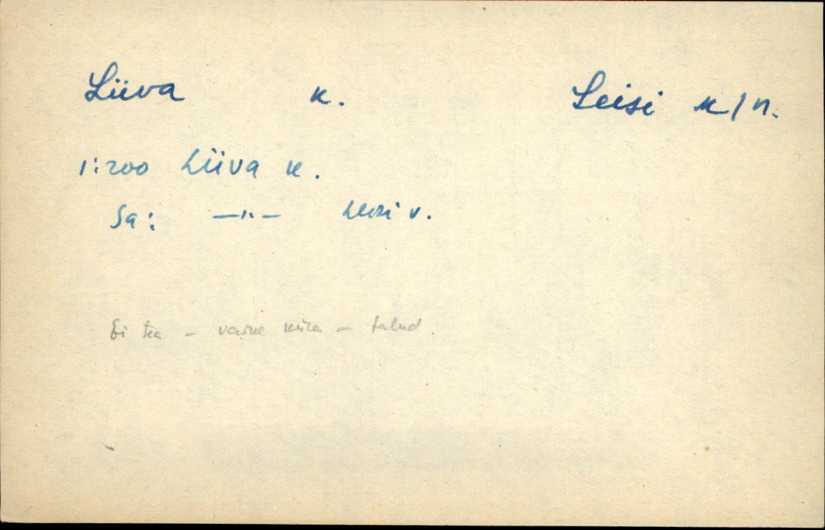 Liiva k. Leisi k/n.
1:200 Liiva k.
Sa: —"— Leisi v.
Ei tea - vaike küla - talud.